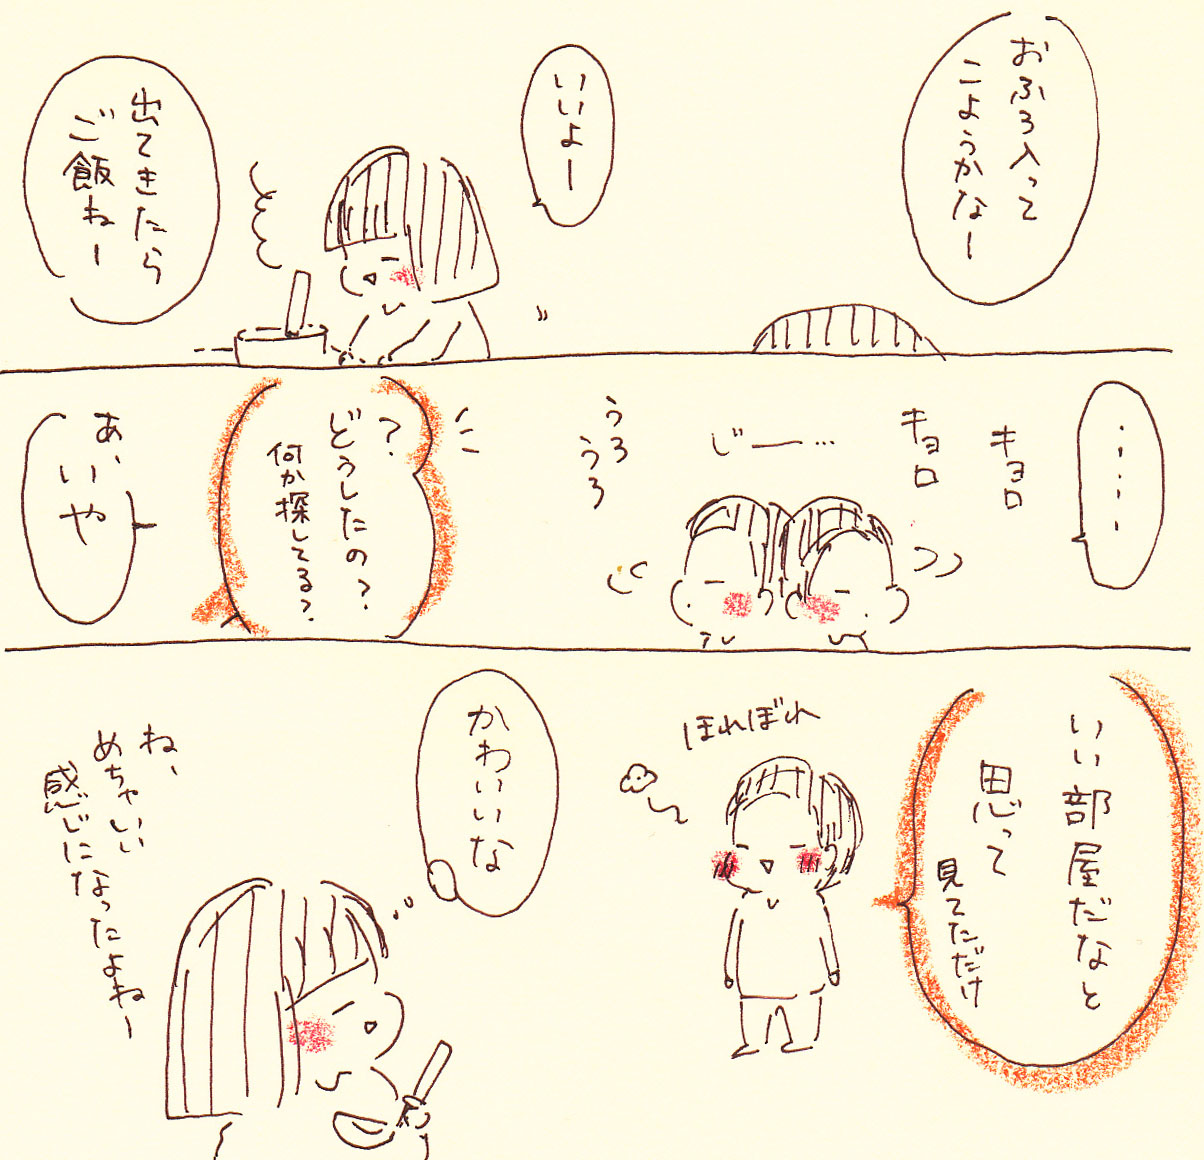 おふろ入って
こようかなー
いいよー
出てきたら
ご飯ねー
……
キョロ
キョロ
じー…
うろ
うろ
?
どうしたの?
何か探してる?
あ、
いや
いい部屋だなと
思って
見てただけ
ほれぼれ
かわいいな
ね、
めちゃいい
感じになったよねー